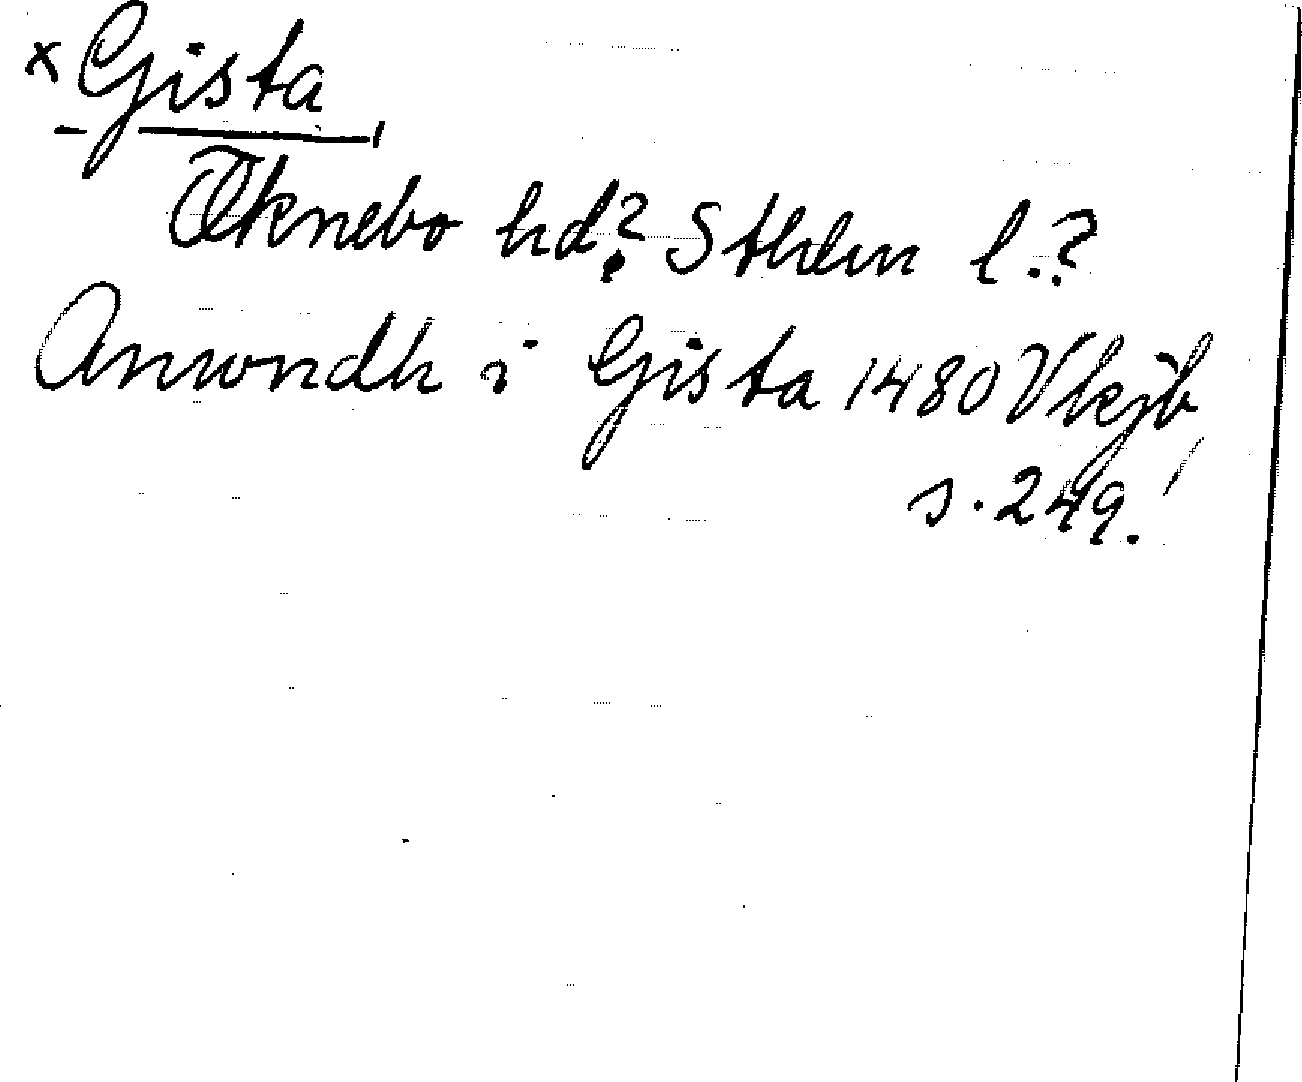 x Gista
Öknebo hd? Sthlm l.?
Anwndh i Gista 1480 Vkjb
s. 249.